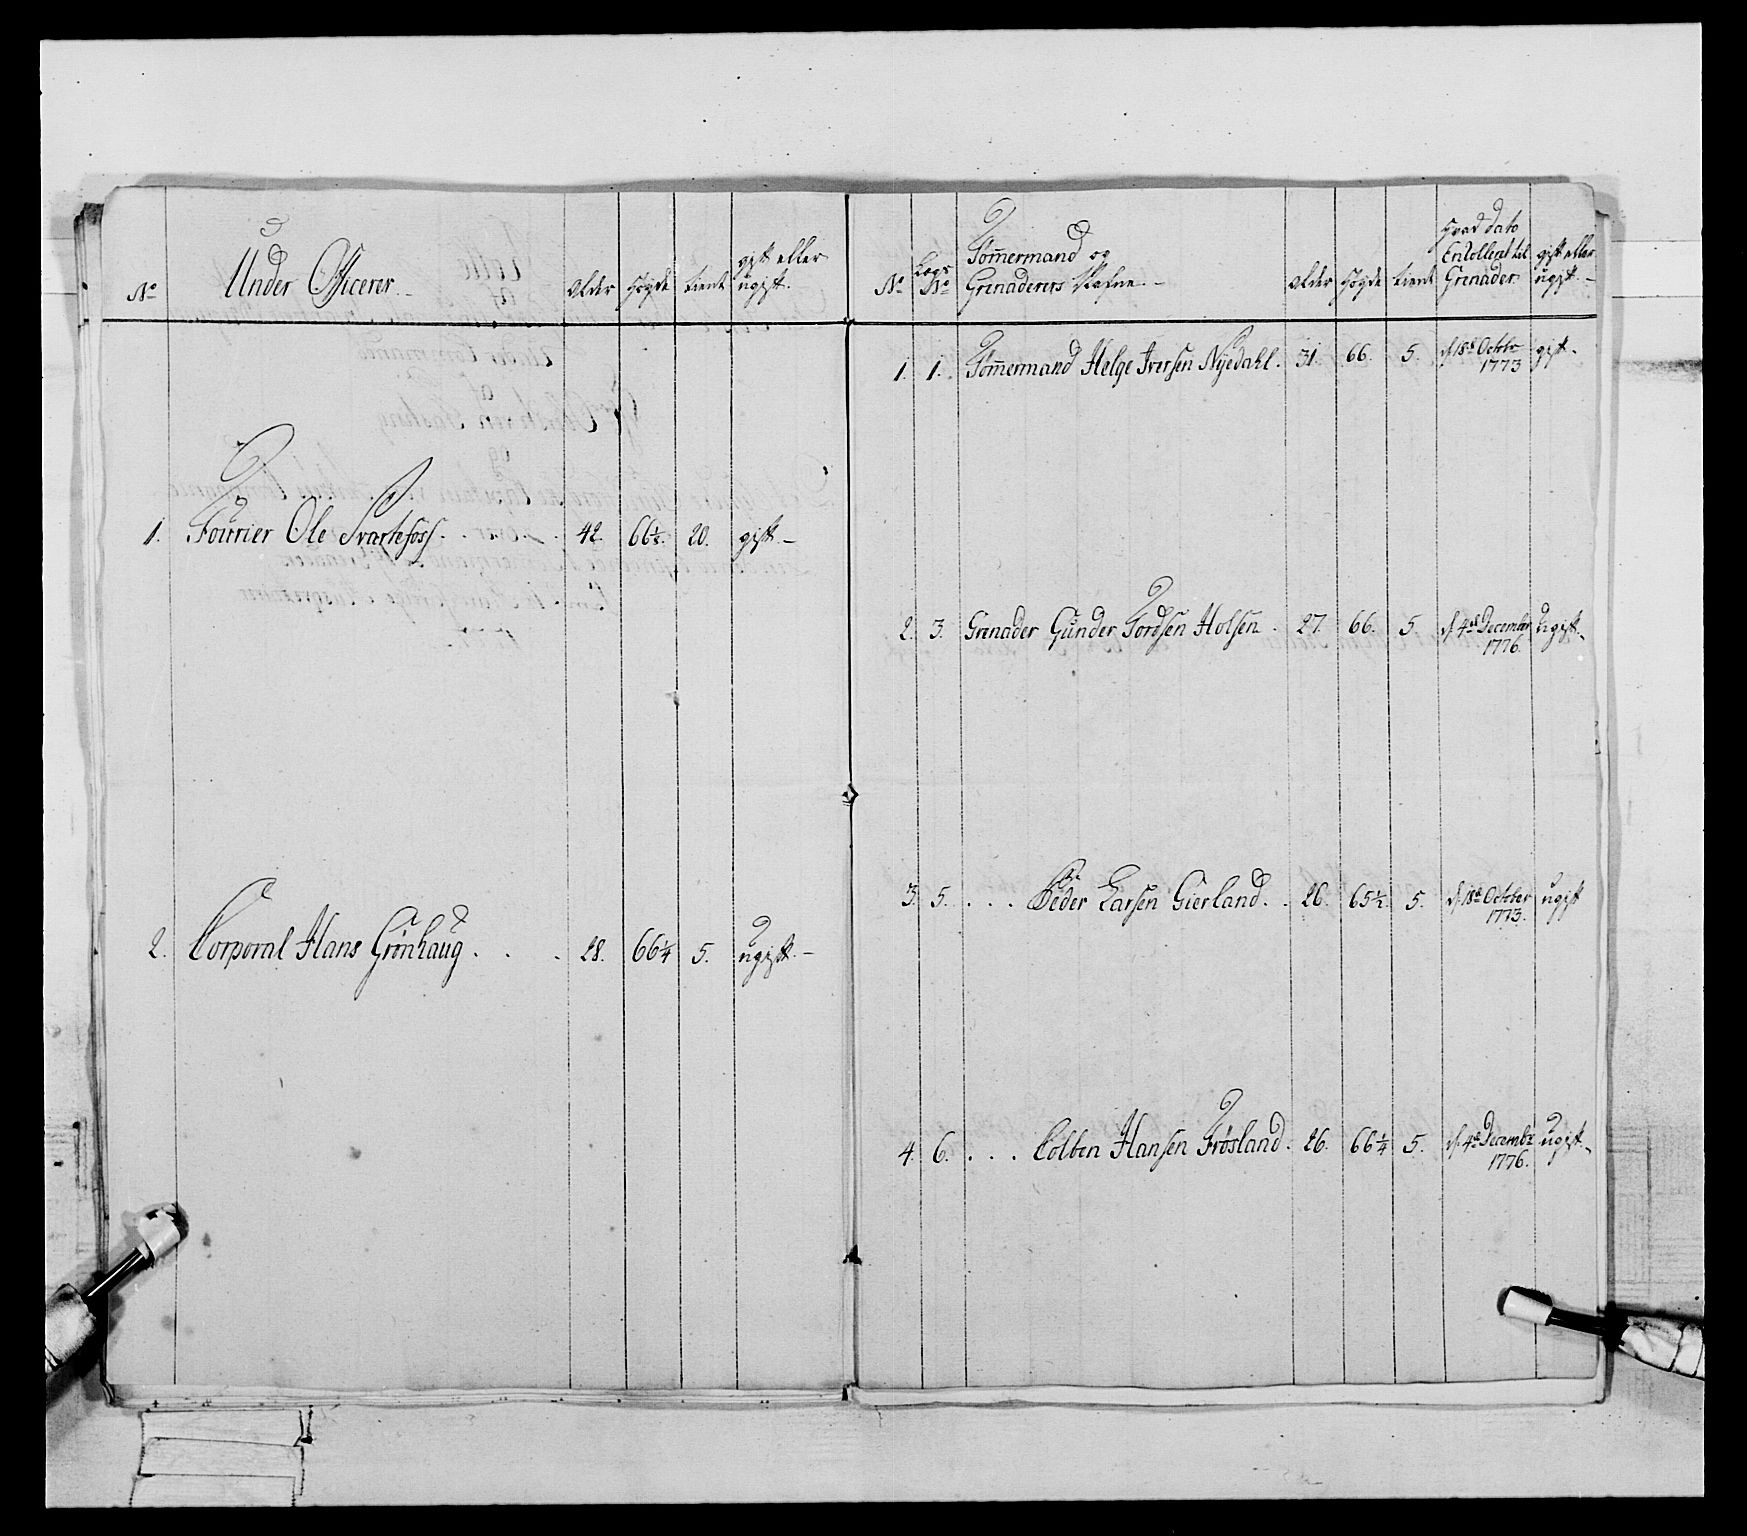 No Under Officerer. alder Høyde tient gift eller ugift.
1. Fourier Ole Svartefoss. 42. 66½. 20. gift
2. Corporal Hans Grønhaug. 28. 66¼ 5. ugift.
No Logs No Tømmermand og Grenaderers Nafne. alder Høyde tient Hvad dato Enrolleret til Grenader. gift eller ugift.
1. 1. Tømmermand Helge Iversen Nyedahl. 31. 66. 5. d. 18de Octbr 1773 gift.
2. 3. Grenader Gunder Tordsen Holsen. 27. 66. 5. d. 4de Decembr 1776. ugift.
3. 5. . . . Peder Larsen Gierland. 26. 65½. 5. d. 18de Octbr 1773. ugift
4. 6. . . . Colben Hansen Frøsland. 26. 66¼ 5. d. 4de Decembr 1776. ugift.